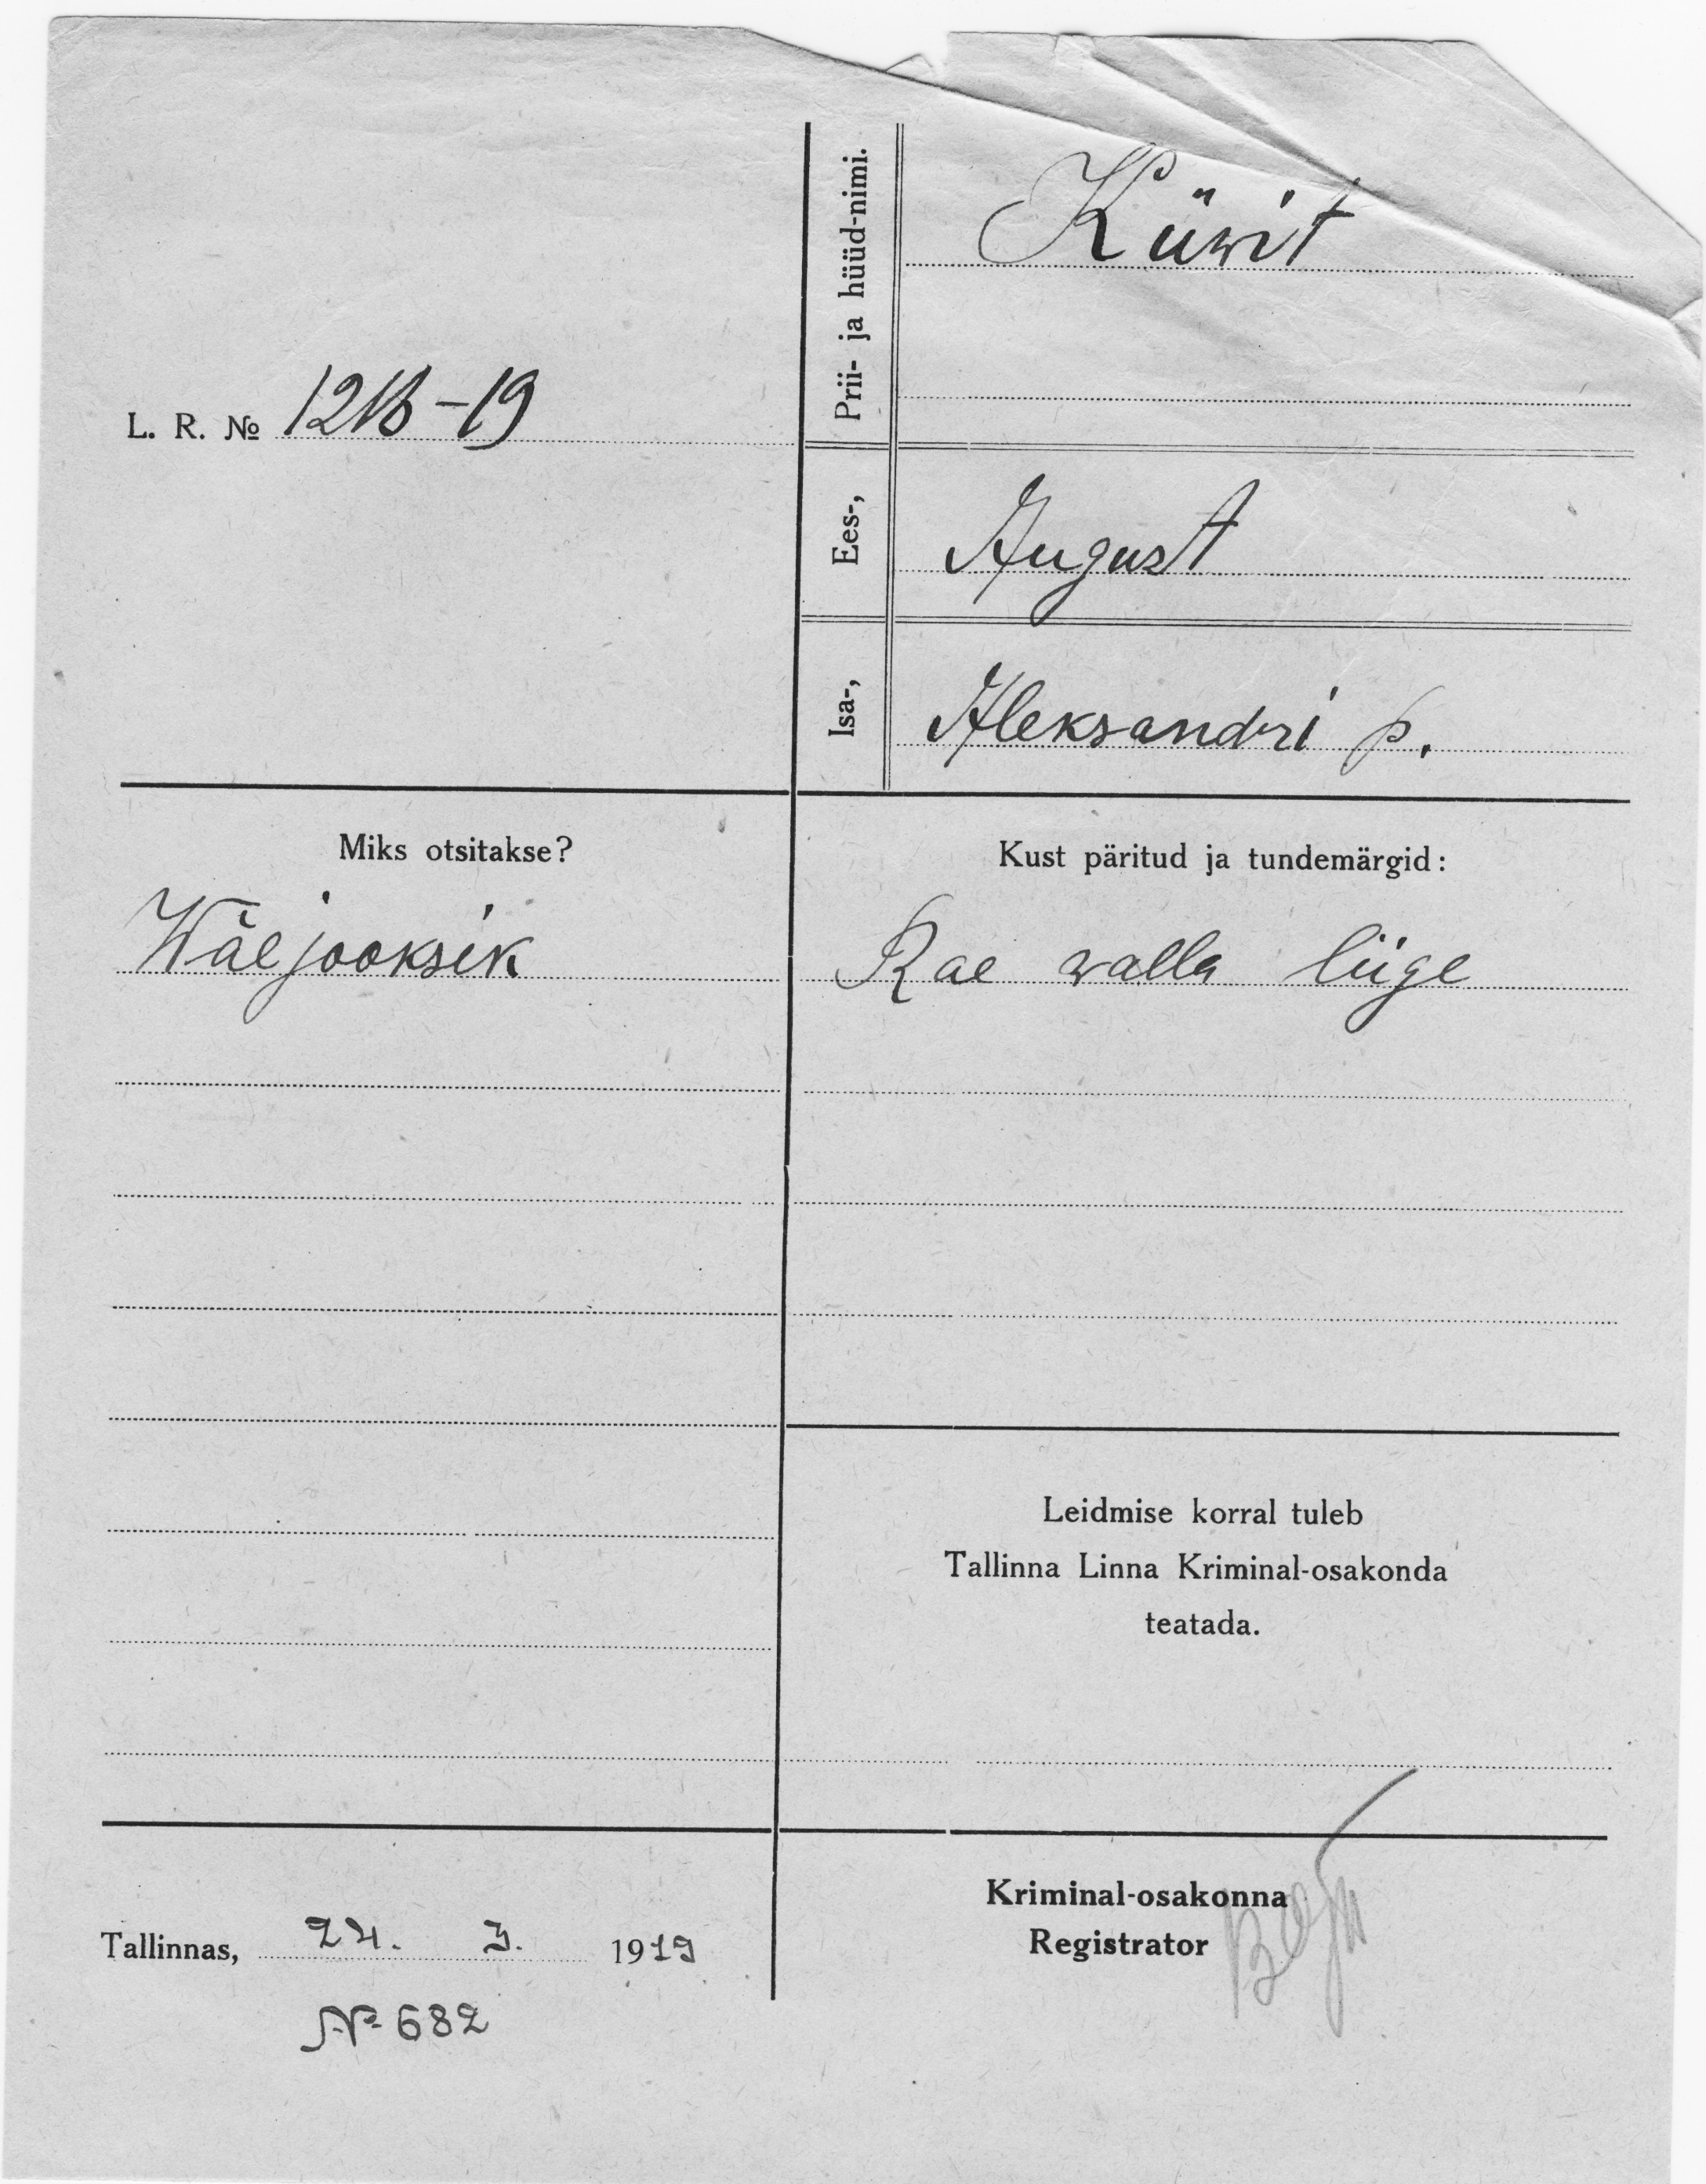 Prii- ja hüüd-nimi.
Küwit
L. R. № 1218-19
Ees-,
August
Isa-,
Aleksandri p.
Miks otsitakse?
Wäejooksik
Kust päritud ja tundemärgid:
Rae walla liige
Leidmise korral tuleb
Tallinna Linna Kriminal-osakonda
teatada.
Kriminal-osakonna
Registrator
Tallinnas, 24. 3. 1919
№ 682